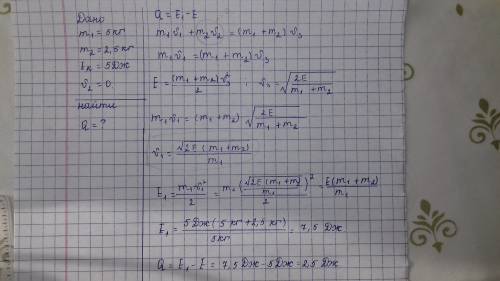 Дано
m₁ = 5 кг
m₂ = 2,5 кг
Eк = 5 Дж
v₂ = 0
найти
Q = ?
Q = E₁ - E
m₁v₁ + m₂v₂ = (m₁ + m₂) v₃
m₁v₁ = (m₁ + m₂) v₃
E = (m₁ + m₂) v₃² / 2 , v₃ = √(2E / (m₁ + m₂))
m₁v₁ = (m₁ + m₂) √(2E / (m₁ + m₂))
v₁ = √(2E (m₁ + m₂)) / m₁
E₁ = m₁v₁² / 2 = m₁ (√(2E (m₁ + m₂)) / m₁)² / 2 = E(m₁ + m₂) / m₁
E₁ = 5 Дж (5 кг + 2,5 кг) / 5 кг = 7,5 Дж
Q = E₁ - E = 7,5 Дж - 5 Дж = 2,5 Дж